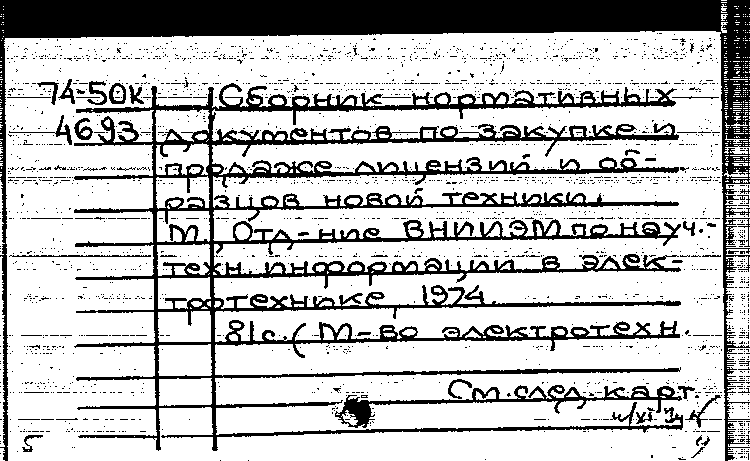 74-50к Сборник нормативных
4693 документов по закупке и
продаже лицензий и об-
разцов новой техники.
М., Отд-ние ВНИИЭМ по науч.-
техн. информации в элек-
тротехнике, 1974.
81с. (М-во электротехн.
См. след. карт.
5